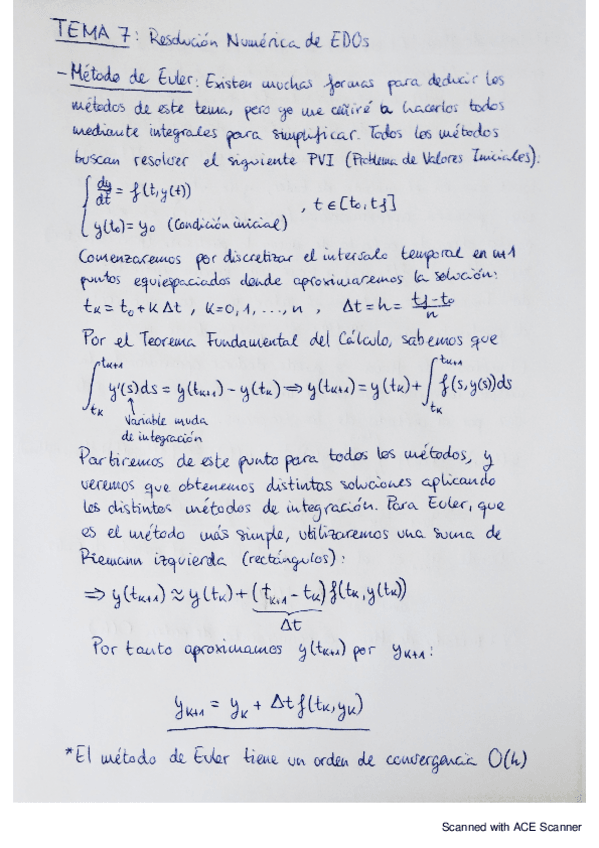 TEMA 7: Resolución Numérica de EDOs
- Método de Euler: Existen muchas formas para deducir los
métodos de este tema, pero yo me ceñiré a hacerlos todos
mediante integrales para simplificar. Todos los métodos
buscan resolver el siguiente PVI (Problema de Valores Iniciales):
{ dy/dt = f(t,y(t))
y(t₀) = y₀ (Condición inicial) , t ∈ [t₀, tf]
Comenzaremos por discretizar el intervalo temporal en n+1
puntos equiespaciados donde aproximaremos la solución:
tₖ = t₀ + k Δt , k=0,1,...,n , Δt = h = (tf - t₀)/n
Por el Teorema Fundamental del Cálculo, sabemos que
∫_{tₖ}^{tₖ₊₁} y'(s)ds = y(tₖ₊₁) - y(tₖ) ⟹ y(tₖ₊₁) = y(tₖ) + ∫_{tₖ}^{tₖ₊₁} f(s,y(s))ds
↑
Variable muda
de integración
Partiremos de este punto para todos los métodos, y
veremos que obtenemos distintas soluciones aplicando
los distintos métodos de integración. Para Euler, que
es el método más simple, utilizaremos una suma de
Riemann izquierda (rectángulos):
⟹ y(tₖ₊₁) ≈ y(tₖ) + (tₖ₊₁ - tₖ) f(tₖ, y(tₖ))
Δt
Por tanto aproximamos y(tₖ₊₁) por yₖ₊₁:
yₖ₊₁ = yₖ + Δt f(tₖ, yₖ)
*El método de Euler tiene un orden de convergencia O(h)
Scanned with ACE Scanner